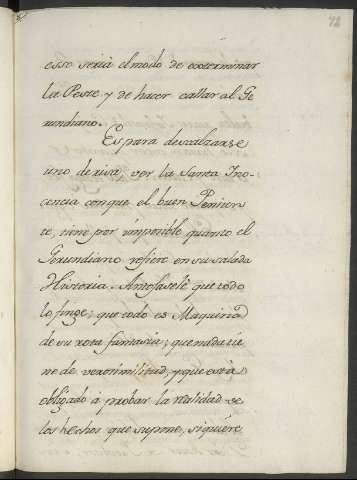 42
esse seria el modo de exterminar
la Peste y de hacer callar al Ge
rundiano.
Es para descalzarse
uno de risa, ver la Santa Ino-
cencia con que el buen Peniten
te, tiene por imposible quanto el
Gerundiano refiere en su salada
Historia. Antojasele que todo
lo finge; que todo es Maquina
de su rota fantasia; que nada tie
ne de verosimilitud, y que está
obligado á probar la realidad de
los hechos que supone, siquiere